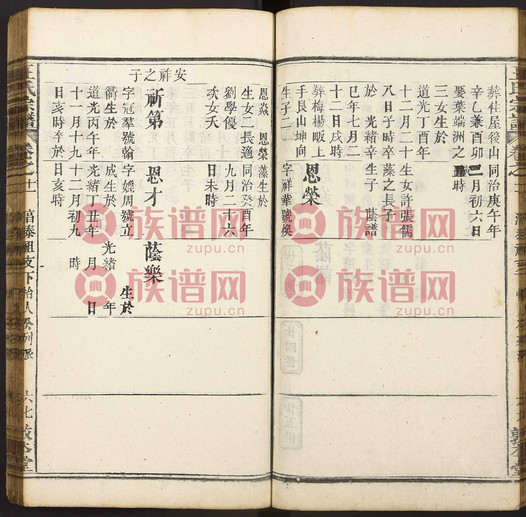 葬住屋後山同治庚午年
辛乙兼酉卯三月初六日
娶葉端洲之丑時
三女生於
道光丁酉年
十二月二十生女許張儒
八日子時卒藻之長子
於光緒辛生子蔭譜
巳年七月二
十二日戌時
葬梅楊畈上恩榮
手艮山坤向
生子二字祥華號煥
恩焱恩榮藻生於
生女二長適同治癸酉年
劉學優九月二十六
次女夭日未時
安祥之子
祈第恩才蔭樂
字冠羣號翰字娛周號立生於
衢生於成生於光緒年
道光丙午年光緒丁丑年月日
十一月初十二月初九時
日亥時卒於日亥時
王氏宗譜卷之十一
六七敦本堂
廿四世
族谱网
zupu.cn